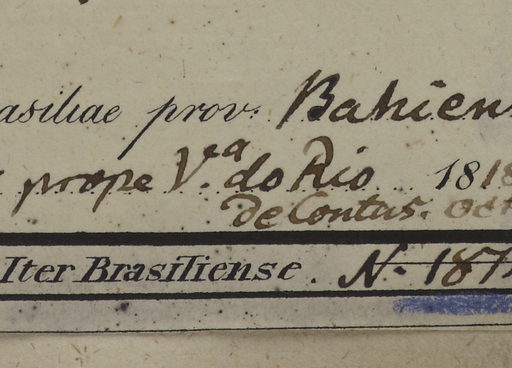 asiliae prov. Bahien
prope V.ª do Rio 1818
de Contas. oct
Iter Brasiliense. N. 187